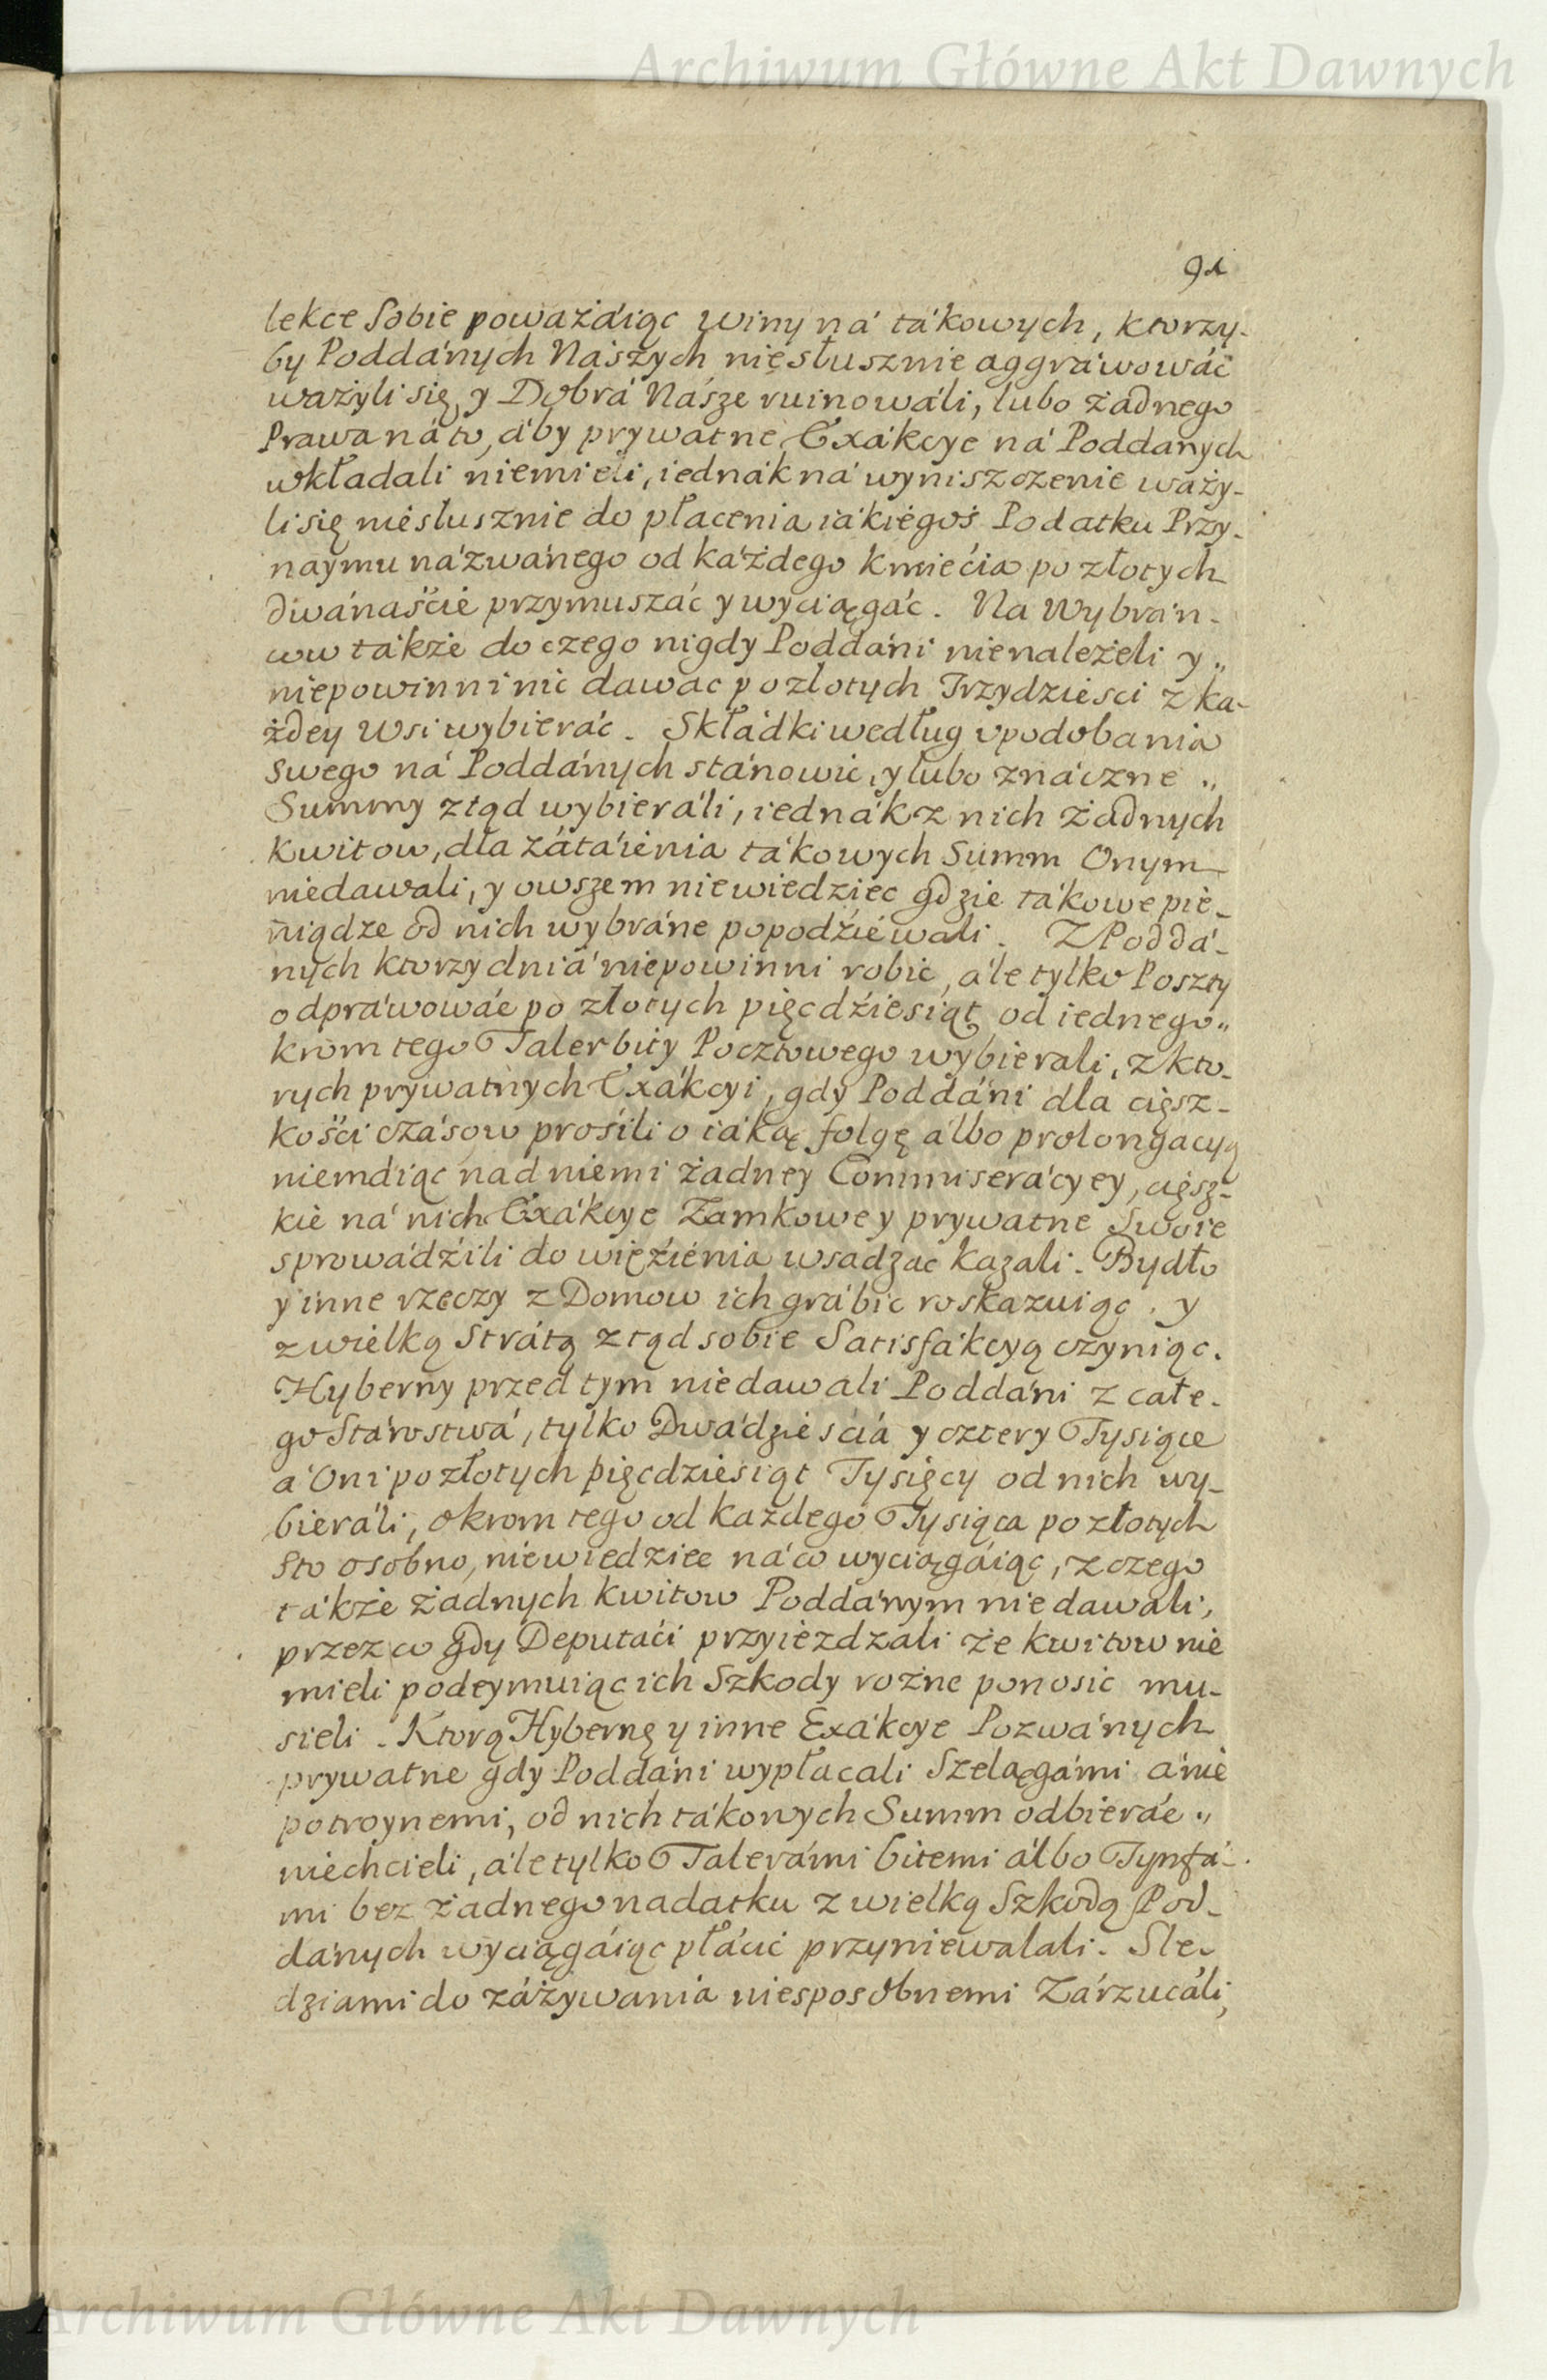 Archiwum Główne Akt Dawnych
91
lekce Sobie poważáiąc winy ná tákowych, ktorzy-
by Poddánych Nászych niesłusznie aggráwowáć
ważyli się, y Dobrá Násze ruinowáli, lubo żadnego
Prawa ná to, áby prywatne Exákcye ná Poddanych
wkładali niemieli, iednák ná wyniszczenie waży-
li się niesłusznie do płacenia iákiegoś Podatku Przy-
naymu názwánego od káżdego Kmiećia po złotych
dwánaście przymuszáć y wyciągáć. Na Wybrán-
cow tákże do czego nigdy Poddáni nienależeli y„
niepowinni nic dawac po złotych Trzydziesci z ka-
żdey Wsi wybieráć. Składki według upodobania
Swego ná Poddánych stánowić, y lubo znáczne „
Summy ztąd wybieráli, iednák z nich żadnych
kwitow, dla zátáienia tákowych Summ Onym
niedawali, y owszem niewiedziec gdzie tákowe pie-
niądze od nich wybráne popodźiewali. Z Poddá-
nych ktorzy dniá niepowinni robić, ále tylko Poszty
odpráwowáć po złotych pięcdźiesiąt od iednego„
krom tego Taler bity Pocztowego wybierali, z kto-
rych prywatnych Exákcyi, gdy Poddáni dla cięsz-
kości czásow prośili o iáką folgę álbo prolongacyą
niemáiąc nad niemi żadney Commiserácyey, cięsz-
kie ná nich Exákcye Zamkowe y prywatne Swoie
sprowádźili do więźienia wsadzac kazali. Bydło
y inne rzeczy z Domow ich grábic roskazuiąc. y
z wielką Strátą ztąd sobie Satisfákcyą czyniąc.
Hyberny przed tym niedawali Poddáni z całe-
go Stárostwá, tylko Dwádzieściá y cztery Tysiące
á Oni po złotych pięcdziesiąt Tysięcy od nich wy-
bieráli, okrom tego od każdego Tysiąca po złotych
Sto osobno, niewiedziec ná co wyciągáiąc, z czego
tákże żadnych kwitow Poddánym nie dawali,
przez co gdy Deputáći przyieżdzali że kwitow nie
mieli podeymuiąc ich Szkody rożne ponosic mu-
sieli. Ktorą Hybernę y inne Exákcye Pozwánych
prywatne gdy Poddáni wypłacali Szelągámi ánie
potroynemi, od nich tákowych Summ odbieráć „
niechcieli, ále tylko Talerámi bitemi álbo Tynfá-
mi bez żadnego nadatku z wielką Szkodą Pod-
dánych wyciągáiąc płácić przyniewalali. Sle-
dziami do záżywania niesposobnemi Zárzucáli,
Archiwum Główne Akt Dawnych